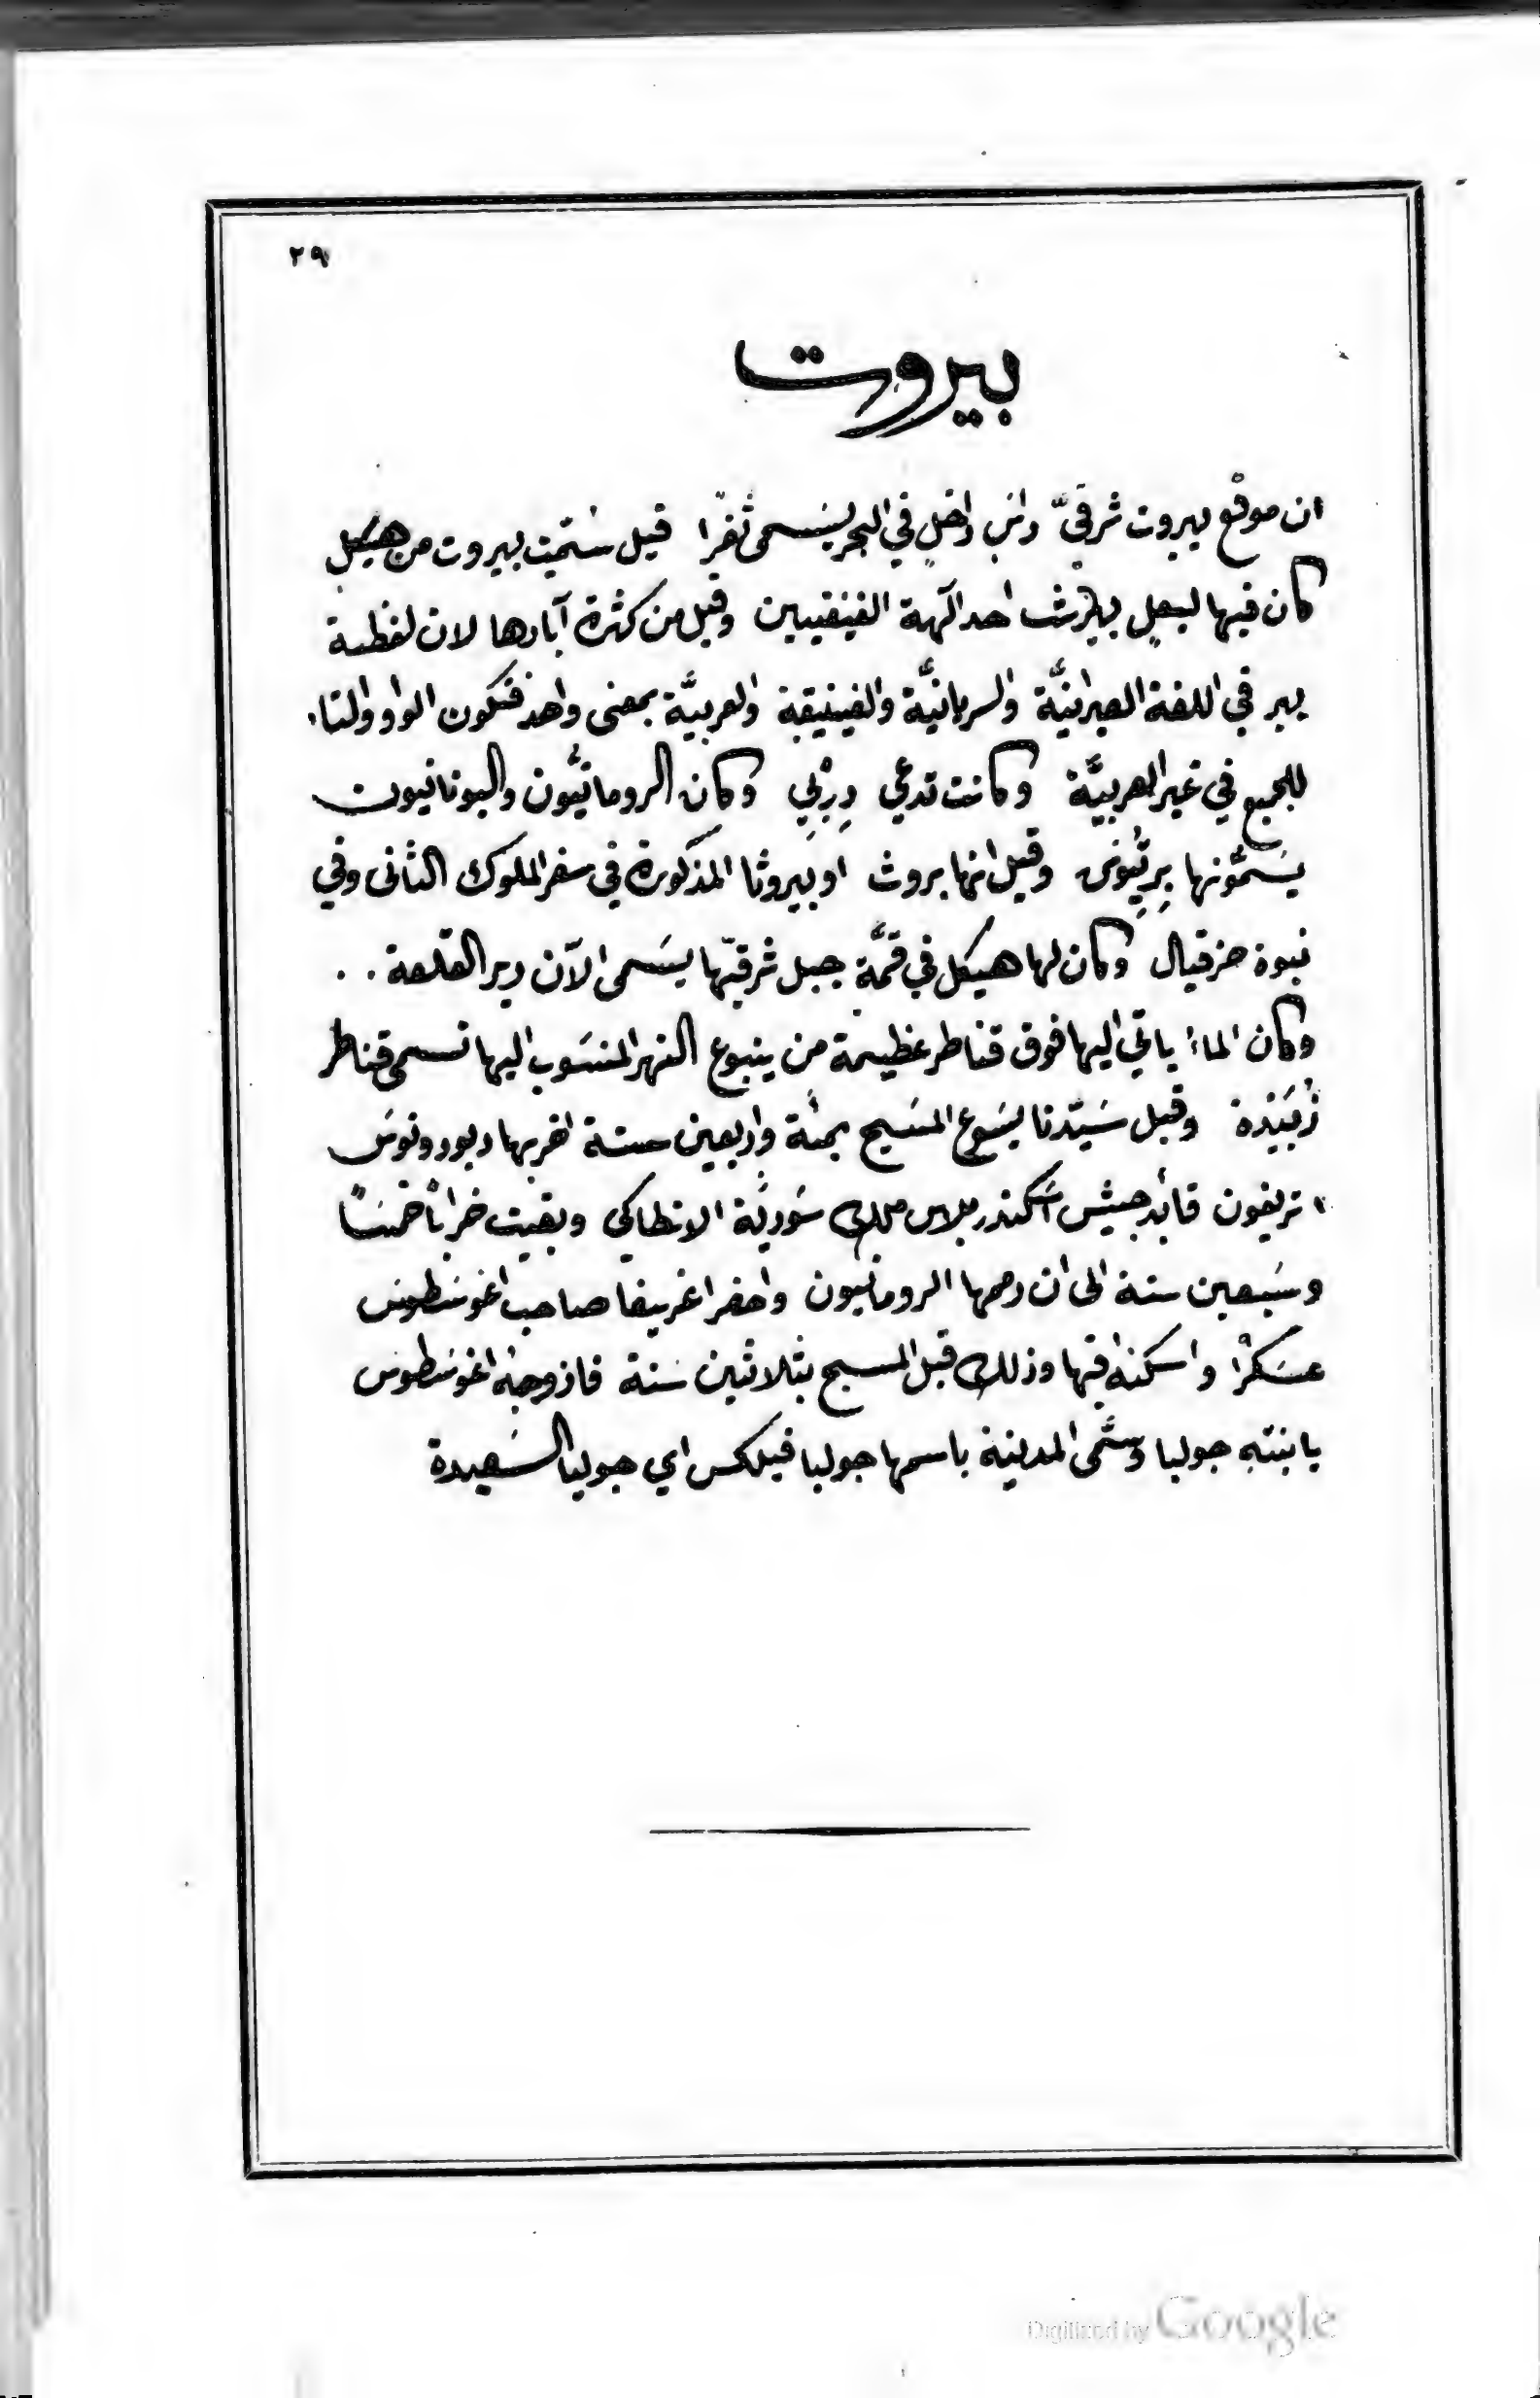 ٢٩
بيروت
ان موقع بيروت شرقيّ راسٍ داخلٍ في البحر يسمى ثغرًا قيل سُمّيت بيروت من هيكلٍ
كان فيها لبعل بيرث احد الٓهة الفينيقيين وقيل من كثرة آبارها لان لفظة
بير في اللغة العبرانيَّة والسريانيَّة والفينيقية والعربيَّة بمعنى واحد فتكون الواو والتاء
للجمع في غير العربيَّة وكانت تدعي دِرْبِي وكان الرومانيُّون واليونانيون
يسمُّونها بِرِيتُوس وقيل انها بروث او بيروثا المذكورة في سفر الملوك الثاني وفي
نبوة حزقيال وكان لها هيكل في قمَّة جبل شرقيّها يسَمى الآن دير القلعة ٠٠
وكان الماءُ ياتي اليها فوق قناطر عظيمة من ينبوع النهر المنسَوب اليها تسمى قناطر
زُبَيْدة وقبل سَيّدنا يسَوع المسَيح بمئة واربعين سنة اخربها ديودوتوس
تريفون قائد جيش اسَكندر بلاس ملك سَوريَّة الانطاكي وبقيت خرابًا خمسًا
وسَبعين سنة الى ان رممها الرومانيون واحضر اغريبا صاحب اغوسَطوس
عسَكرًا واسكنهُ فيها وذلك قبل المسيح بثلاثين سَنة فازوجهُ اغوسَطوس
بابنتهِ جوليا وسمَّى المدينة باسمها جوليا فيلكس اي جوليا السَعيدة
Digitized by Google